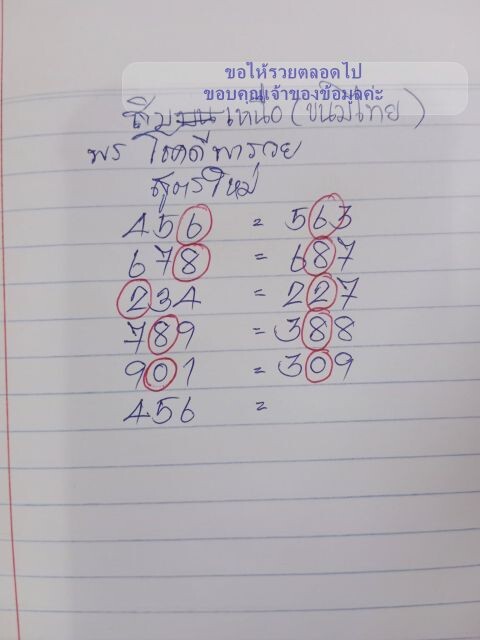 ขอให้รวยตลอดไป
ขอบคุณเจ้าของข้อมูลค่ะ
ทีม เหนือ (ขนมไทย)
พร โชคดีพารวย
สูตรใหม่
456 = 563
678 = 687
234 = 227
789 = 388
901 = 309
456 =